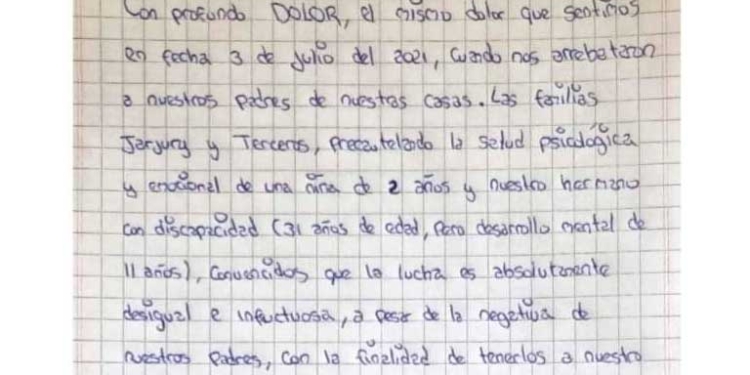 Con profundo DOLOR, el mismo dolor que sentimos
en fecha 3 de julio del 2021, cuando nos arrebataron
a nuestros padres de nuestas casas. Las familias
y Terceros, precautelando la salud psicológica
y emocional de una niña de 2 años y nuestro hermano
con discapacidad (31 años de edad, pero desarrollo mental de
11 años), convencidos que la lucha es absolutamente
desigual e infuctuosa, a pesar de la negativa de
nuestros padres, con la finalidad de tenerlos a nuestro